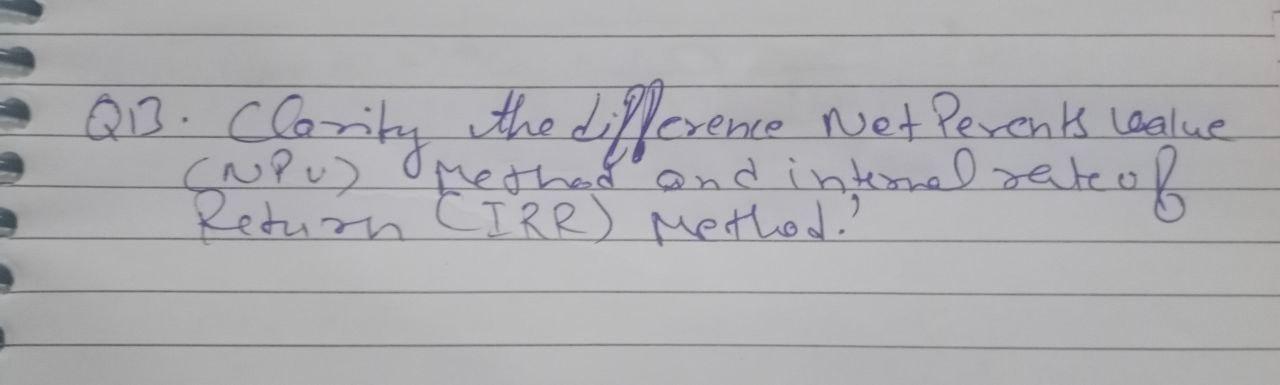 Q13. Clarity the difference Net Perents Value
(NPV) Method and internal rate of
Return (IRR) Method.'